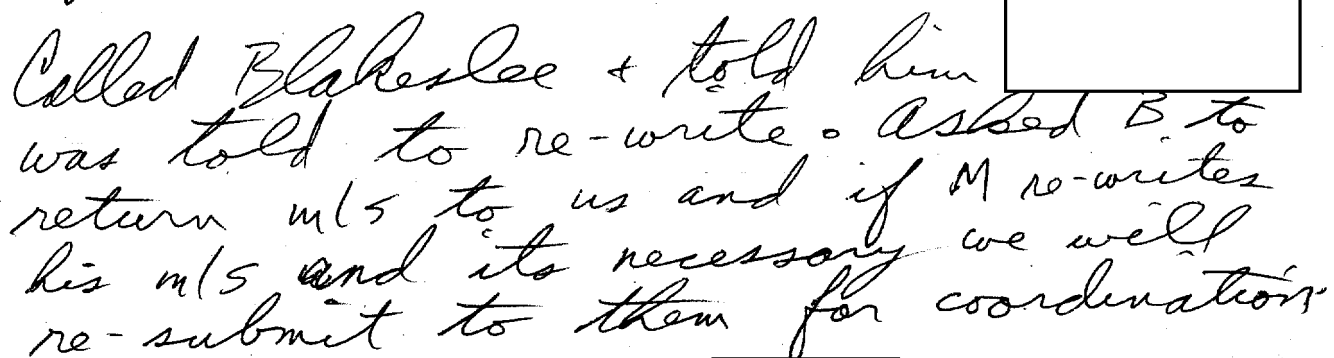 Called Blakeslee + told him
was told to re-write. Asked B. to
return m/s to us and if M re-writes
his m/s and its necessary we will
re-submit to them for coordination.